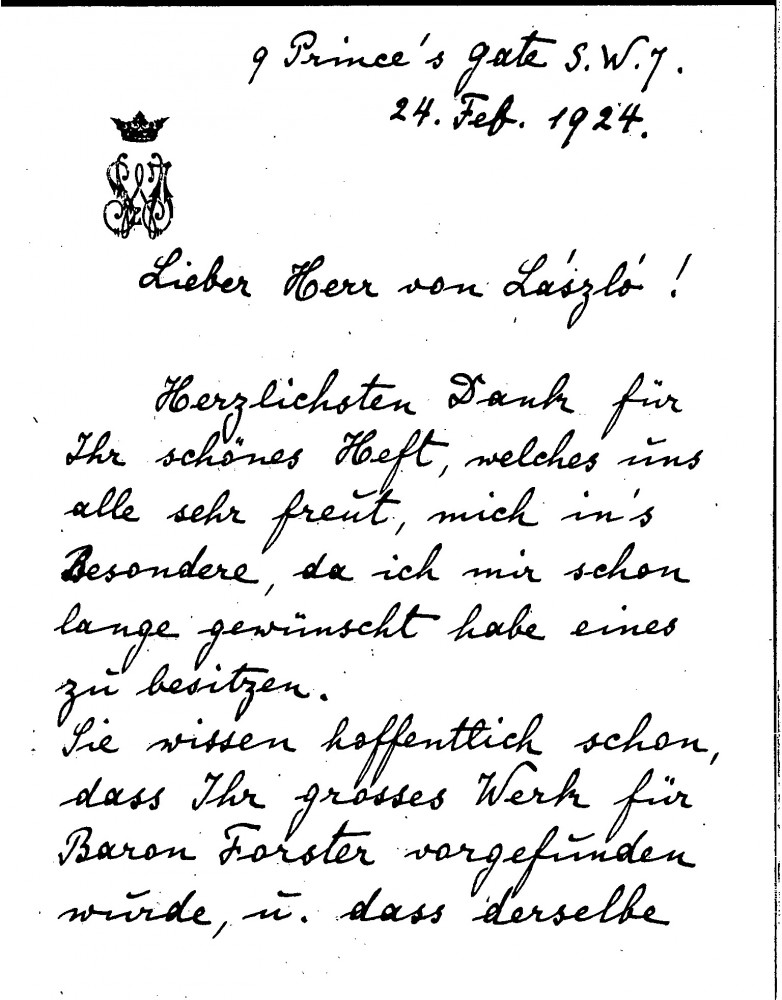 9 Prince's Gate S.W.7.
24. Feb. 1924.
Lieber Herr von László!
Herzlichsten Dank für
Ihr schönes Heft, welches uns
alle sehr freut, mich in's
Besondere, da ich mir schon
lange gewünscht habe eines
zu besitzen.
Sie wissen hoffentlich schon,
dass Ihr grosses Werk für
Baron Forster vorgefunden
wurde, u. dass derselbe